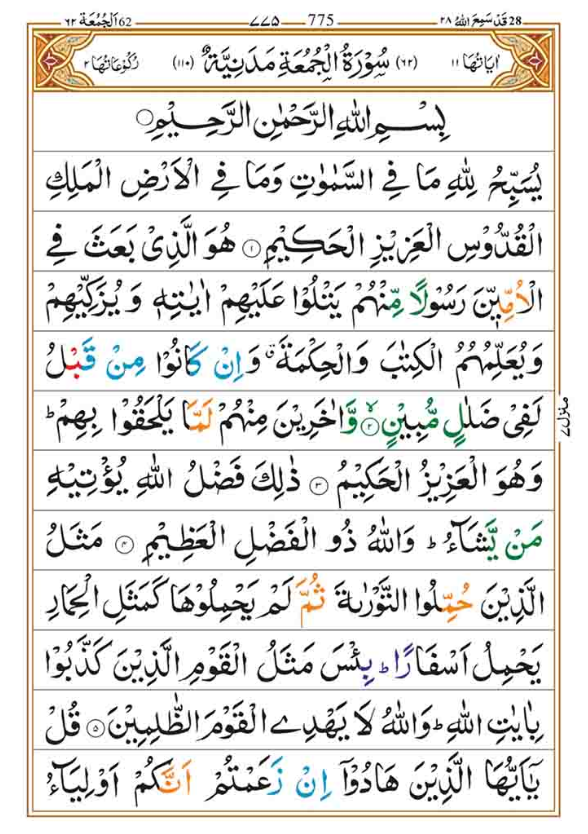 28 قَدْ سَمِعَ اللّٰهُ ٢٨ 775 ٧٧٥ 62 اَلْجُمُعَة ٦٢
اٰيَاتُهَا ١١ (٦٢) سُوْرَةُ الْجُمُعَةِ مَدَنِيَّةٌ (١١٠) رُكُوْعَاتُهَا ٢
بِسْمِ اللّٰهِ الرَّحْمٰنِ الرَّحِيْمِ ○
يُسَبِّحُ لِلّٰهِ مَا فِي السَّمٰوٰتِ وَمَا فِي الْاَرْضِ الْمَلِكِ
الْقُدُّوْسِ الْعَزِيْزِ الْحَكِيْمِ ١ هُوَ الَّذِيْ بَعَثَ فِي
الْاُمِّيّٖنَ رَسُوْلًا مِّنْهُمْ يَتْلُوْا عَلَيْهِمْ اٰيٰتِهٖ وَ يُزَكِّيْهِمْ
وَيُعَلِّمُهُمُ الْكِتٰبَ وَالْحِكْمَةَ ۗ وَاِنْ كَانُوْا مِنْ قَبْلُ
لَفِيْ ضَلٰلٍ مُّبِيْنٍ ۙ ٢ وَّاٰخَرِيْنَ مِنْهُمْ لَمَّا يَلْحَقُوْا بِهِمْ ؕ
وَهُوَ الْعَزِيْزُ الْحَكِيْمُ ٣ ذٰلِكَ فَضْلُ اللّٰهِ يُؤْتِيْهِ
مَنْ يَّشَآءُ ؕ وَاللّٰهُ ذُو الْفَضْلِ الْعَظِيْمِ ٤ مَثَلُ
الَّذِيْنَ حُمِّلُوا التَّوْرٰىةَ ثُمَّ لَمْ يَحْمِلُوْهَا كَمَثَلِ الْحِمَارِ
يَحْمِلُ اَسْفَارًا ؕ بِئْسَ مَثَلُ الْقَوْمِ الَّذِيْنَ كَذَّبُوْا
بِاٰيٰتِ اللّٰهِ ؕ وَاللّٰهُ لَا يَهْدِي الْقَوْمَ الظّٰلِمِيْنَ ٥ قُلْ
يٰٓاَيُّهَا الَّذِيْنَ هَادُوْٓا اِنْ زَعَمْتُمْ اَنَّكُمْ اَوْلِيَآءُ
منزل ٧